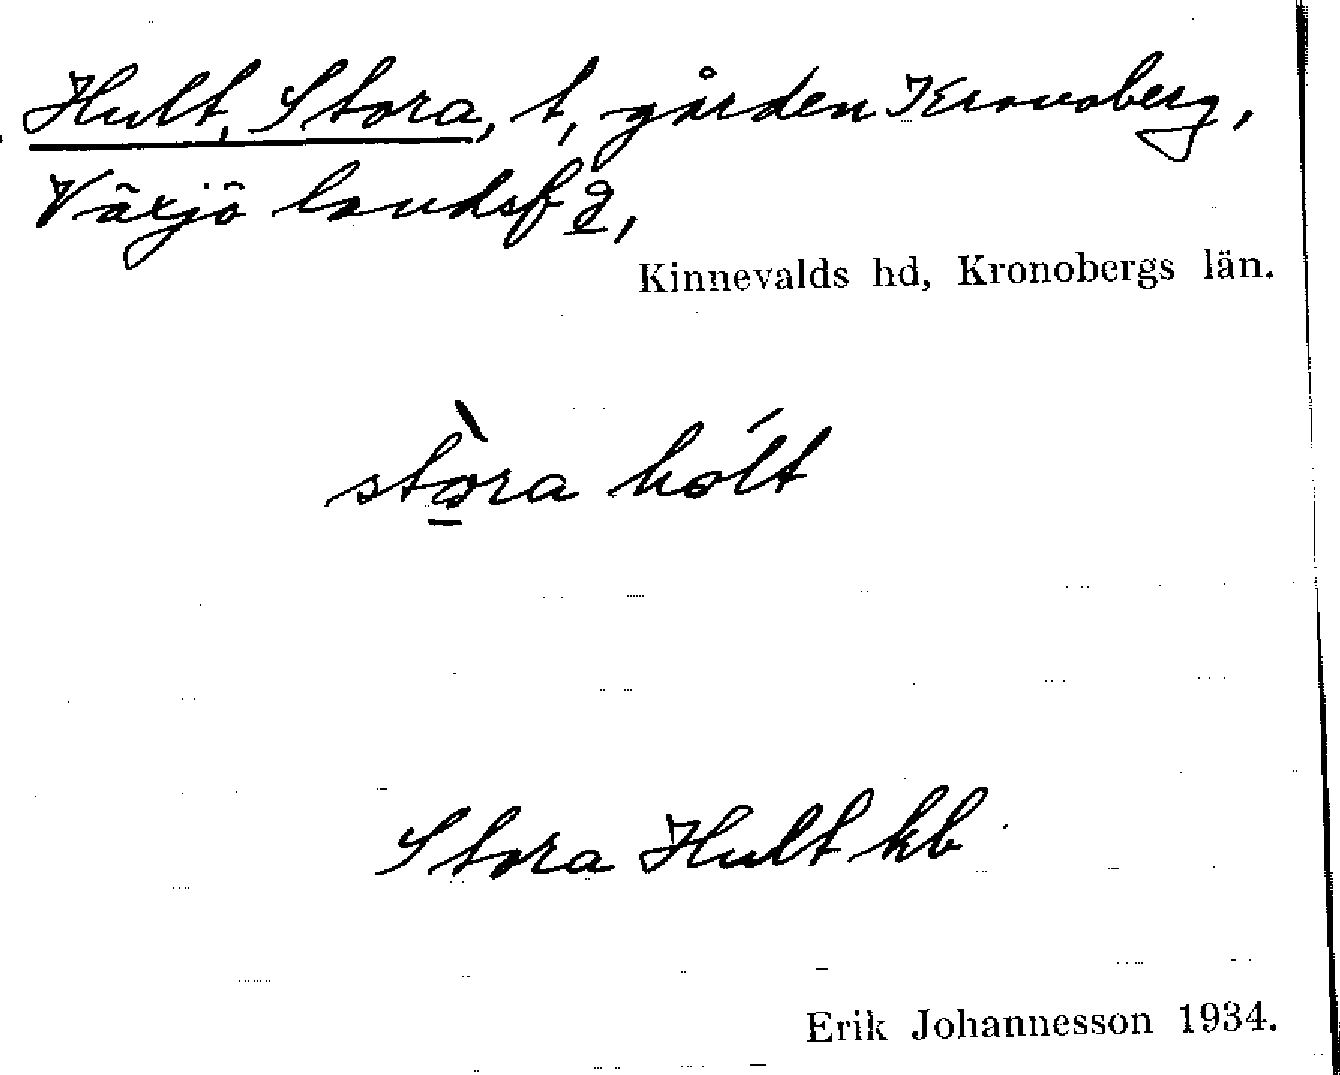 Hult, Stora, t, gården Kronoberg,
Växjö landsf g,
Kinnevalds hd, Kronobergs län.
stòra hólt
Stora Hult kb
Erik Johannesson 1934.